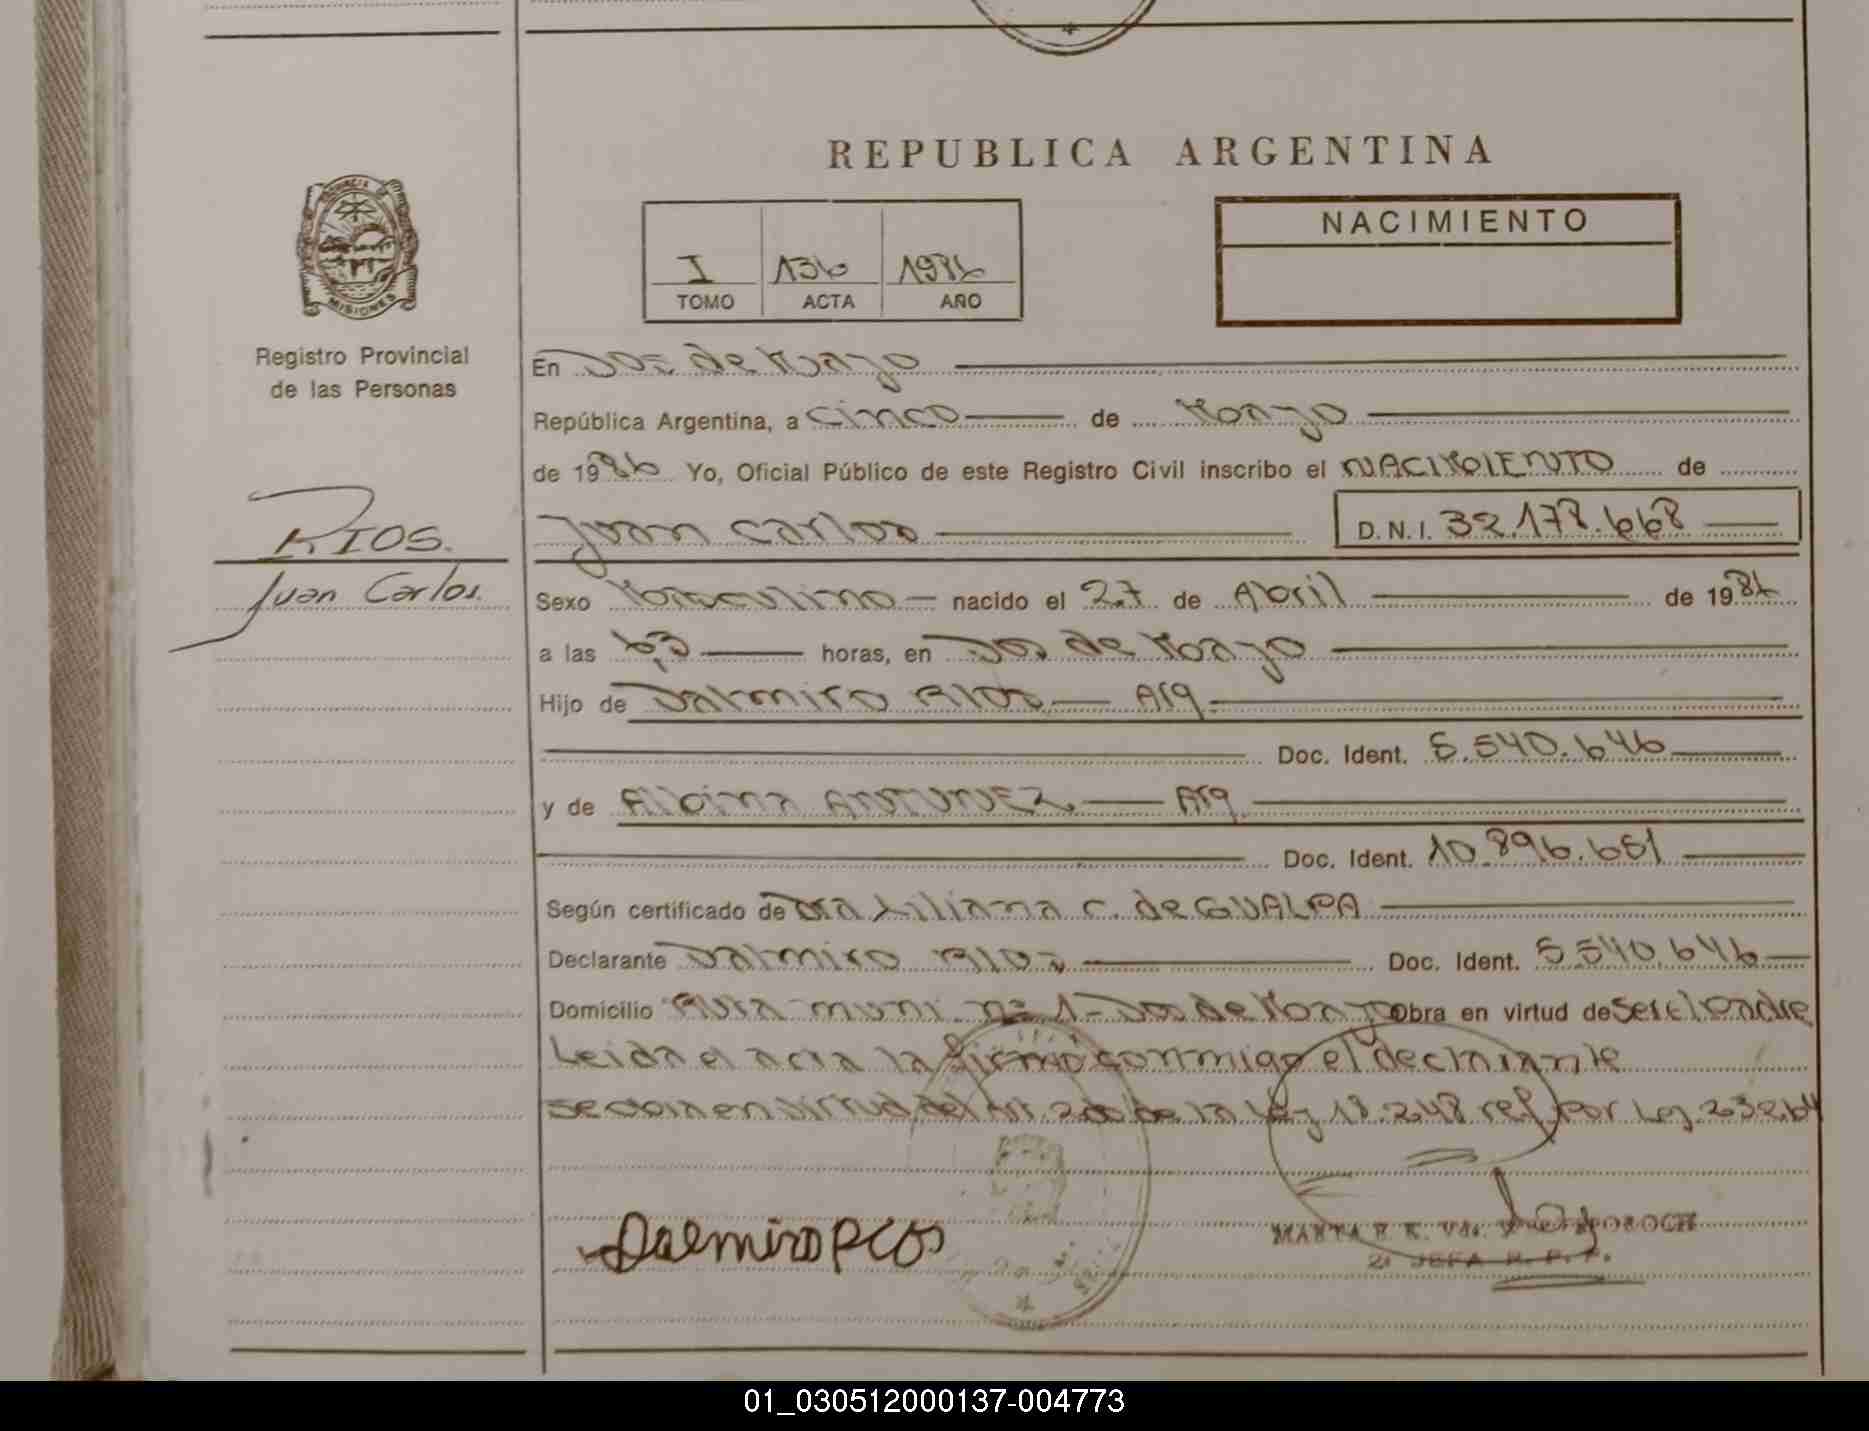 REPUBLICA ARGENTINA
PROVINCIA DE
MISIONES
Registro Provincial
de las Personas
I 136 1986
TOMO ACTA AÑO
NACIMIENTO
En Dos de Mayo
República Argentina, a cinco de Mayo
de 1986 Yo, Oficial Público de este Registro Civil inscribo el NACIMIENTO de
RIOS.
Juan Carlos D.N.I. 32.178.668
Juan Carlos.
Sexo Masculino nacido el 27 de Abril de 1986
a las horas, en Dos de Mayo
Hijo de Dalmiro Rios Arg
Doc. Ident. 5.540.646
y de Albina ANTUNEZ Arg
Doc. Ident. 10.896.651
Según certificado de Dra Liliana C. de GUALPA
Declarante Dalmiro Rios Doc. Ident. 5.540.646
Domicilio Ruta muni. nº 1 - Dos de Mayo Obra en virtud de ser el Padre
Leida el acta la firmó conmigo el declarante
en virtud del Art. de la Ley 18.248 ref. por Ley 23264
Dalmiro RIOS
MARTA E. K. Vda.
2ª JEFA R. P. P.
01_030512000137-004773